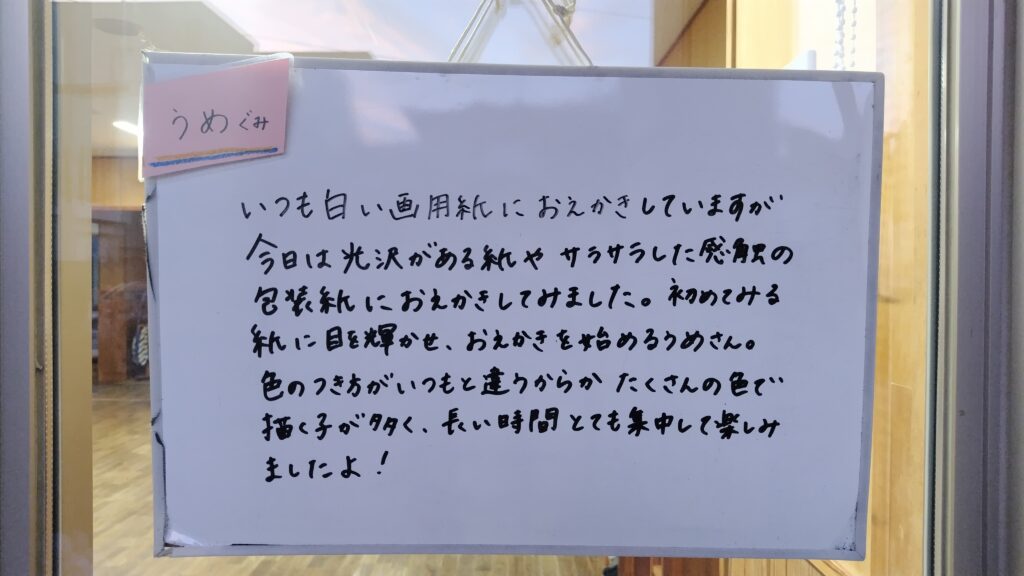 うめぐみ
いつも白い画用紙におえかきしていますが
今日は光沢がある紙や サラサラした感触の
包装紙におえかきしてみました。初めてみる
紙に目を輝かせ、おえかきを始めるうめさん。
色のつき方がいつもと違うからか たくさんの色で
描く子が多く、長い時間とても集中して楽しみ
ましたよ！